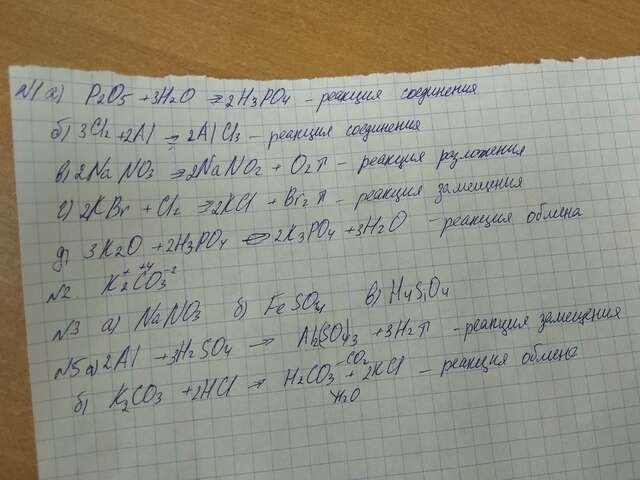 N1 а) P2O5 + 3H2O → 2H3PO4 – реакция соединения
б) 3Cl2 + 2Al → 2AlCl3 – реакция соединения
в) 2NaNO3 → 2NaNO2 + O2↑ – реакция разложения
г) 2KBr + Cl2 → 2KCl + Br2↑ – реакция замещения
д) 3K2O + 2H3PO4 → 2K3PO4 + 3H2O – реакция обмена
N2. K2⁺C⁺⁴O3⁻²
N3 а) NaNO3 б) FeSO4 в) H4SiO4
N5 а) 2Al + 3H2SO4 → Al2(SO4)3 + 3H2↑ – реакция замещения
б) K2CO3 + 2HCl → H2CO3 + 2KCl – реакция обмена
CO2
H2O